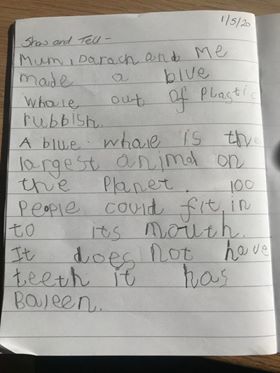 1/5/20
Show and Tell -
Mum, Darach and me
made a blue
whale out of Plastic
rubbish.
A blue whale is the
largest animal on
the Planet. 100
People could fit in
to its mouth.
It does not have
teeth it has
Baleen.